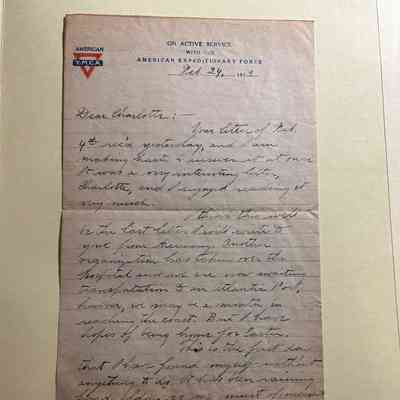 AMERICAN
Y.M.C.A.
ON ACTIVE SERVICE
WITH THE
AMERICAN EXPEDITIONARY FORCE
Feb. 24, 191
Dear Charlotte:-
Your letter of Feb.
4th rec'd yesterday, and I am
making haste to answer it at once
It was a very interesting letter,
Charlotte, and I enjoyed reading it
very much.
I think this will
be the last letter I will write to
you from Germany. Another
organization has taken over the
Hospital and we are now awaiting
transportation to an Atlantic Port,
however, we may be a month in
reaching the coast. But I have
hopes of being home for Easter.
This is the first day
that I have found myself without
anything to do. It has been raining